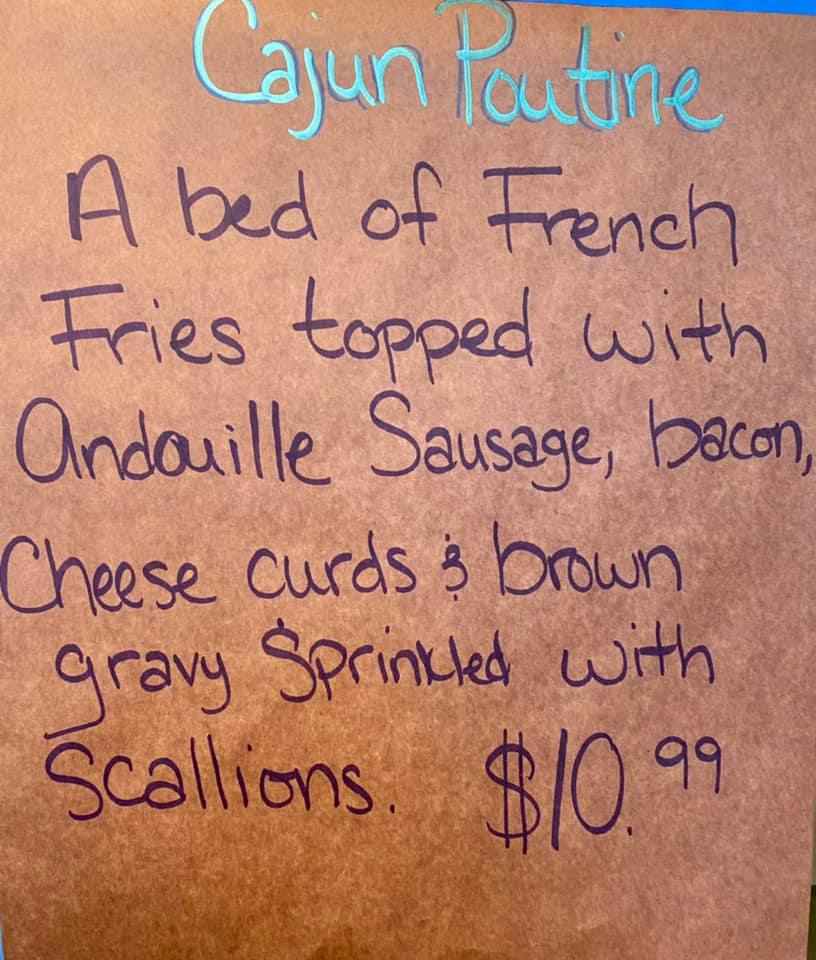 Cajun Poutine
A bed of French
Fries topped with
Andouille Sausage, bacon,
Cheese curds & brown
gravy Sprinkled with
Scallions. $10.99